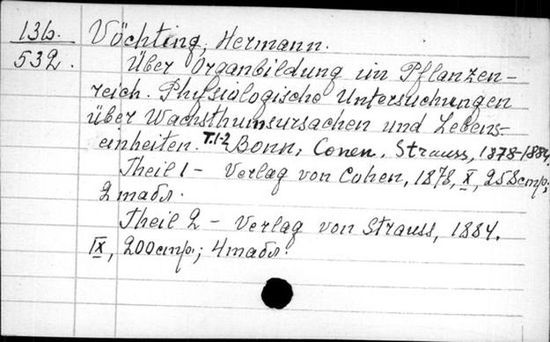 136. Vöchting, Hermann.
532. Über Organbildung im Pflanzen-
reich. Physiologische Untersuchungen
über Wachsthumsursachen und Lebens-
einheiten. T.1-2 Bonn, Conen, Strauss, 1878-1884
Theil 1 – Verlag von Cohen, 1878, X, 258 стр.,
2 табл.
Theil 2 – Verlag von Strauss, 1884.
IX, 200 стр.; 4 табл.